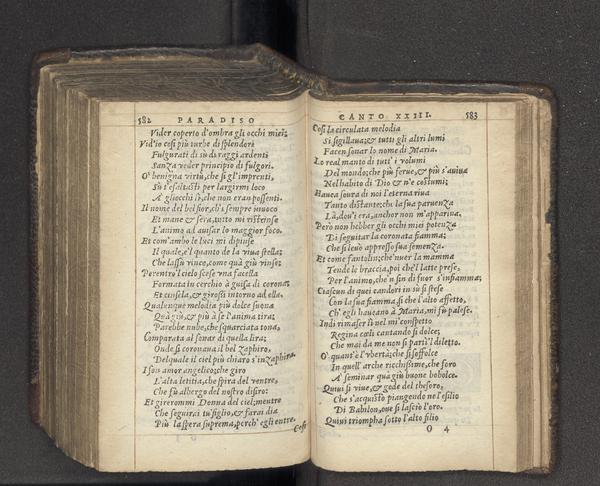 582 PARADISO
Vider coperto d'ombra gli occhi miei;
Vid'io cosi più turbe di splendori
Fulgurati di sù di raggi ardenti
Sanza veder principio di fulgori.
O' benigna virtù, che si gl'imprenti,
Sù t'essaltasti per largirmi loco
A' gliocchi lì, che non eran possenti.
Il nome del bel fior, ch'i sempre inuoco
Et mane & sera, tutto mi ristrinse
L'animo ad auisar lo maggior foco.
Et com'ambo le luci mi dipinse
Il quale, e'l quanto de la viua stella;
Che la ssù vince, come quà giù vinse;
Perentro'l cielo scese vna facella
Formata in cerchio à guisa di corona;
Et cinsela, & girossi intorno ad ella.
Qualunque melodia più dolce suona
Quà giù, & più à se l'anima tira;
Parebbe nube, che squarciata tona,
Comparata al sonar di quella lira;
Onde si coronaua il bel Zaphiro,
Del quale il ciel più chiaro s'inzaphira.
I son amor angelico; che giro
L'alta letitia, che spira del ventre,
Che fù albergo del nostro disiro:
Et girerommi Donna del ciel; mentre
Che seguirai tu' figlio, & farai dia
Più la spera suprema, perch' egli entre.
Cosi
CANTO XXIII. 583
Cosi la circulata melodia
Si sigillaua; & tutti gli altri lumi
Facen sonar lo nome di Maria.
Lo real manto di tutt' i volumi
Del mondo; che più ferue, & più s'auiua
Nel habito di Dio & n'e costumi;
Hauea soura di noi l'eterna riua
Tanto distante; che la sua paruenza
Là, dou'i era, anchor non m'appariua.
Però non hebber gli occhi miei potenza
Di seguitar la coronata fiamma;
Che si leuò appresso sua semenza.
Et come fantolin; che'nuer la mamma
Tende le braccia, poi che'l latte prese,
Per l'animo, che'n fin di fuor s'infiamma;
Ciascun di quei candori in sù si stese
Con la sua fiamma si che l'alto affetto,
Ch' egli haueano à Maria, mi fù palese.
Indi rimaser li nel mi' conspetto
Regina cœli cantando si dolce;
Che mai da me non si partì 'l diletto.
O' quant'è l'vbertà; che si soffolce
In quell' arche ricchissime, che foro
A' seminar quà giù buone bobolce.
Quiui si viue, & gode del thesoro,
Che s'acquistò piangendo ne l'esilio
Di Babilon, oue si lasciò l'oro.
Quiui triompha sotto l'alto filio
O 4